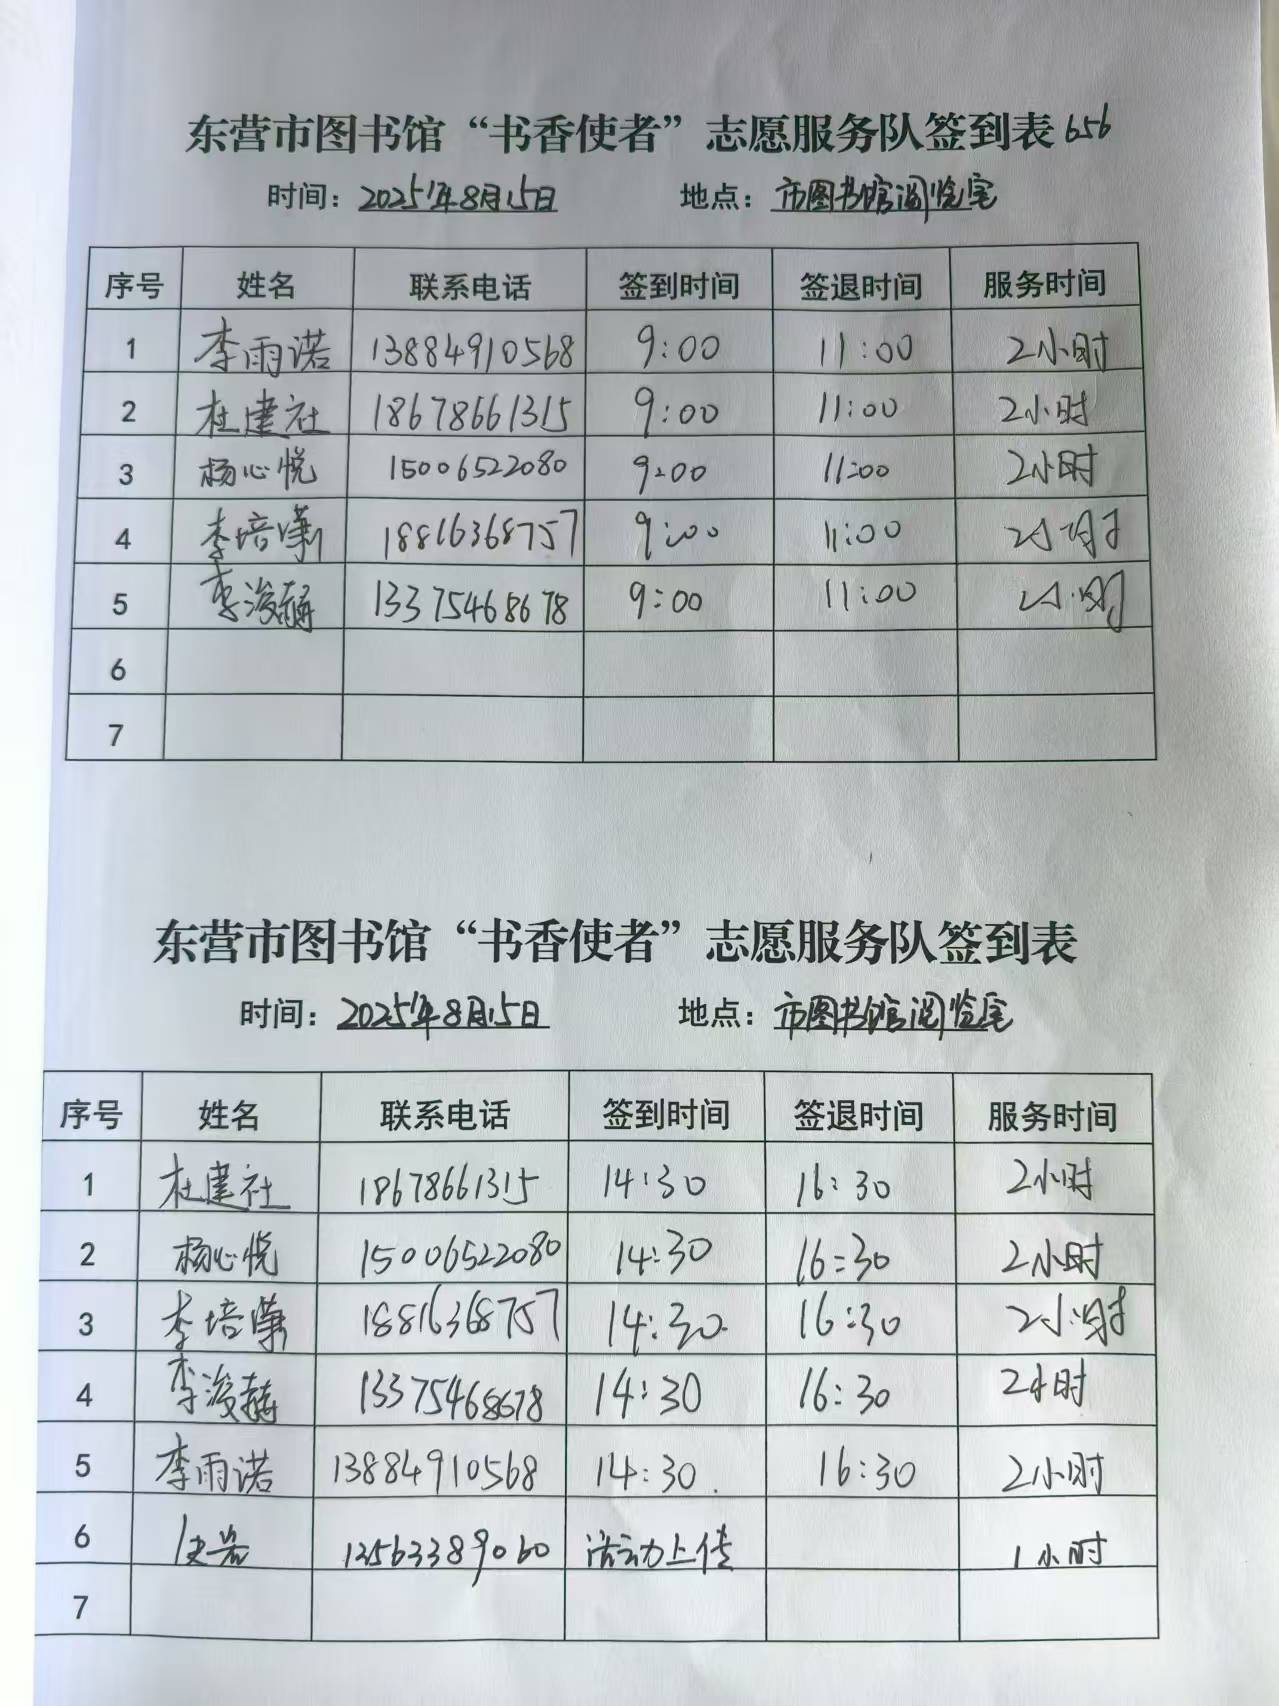 东营市图书馆“书香使者”志愿服务队签到表 656
时间：2025年8月15日 地点：市图书馆阅览室
序号 姓名 联系电话 签到时间 签退时间 服务时间
1 李雨诺 13884910568 9:00 11:00 2小时
2 杜建社 18678661315 9:00 11:00 2小时
3 杨心悦 15006522080 9:00 11:00 2小时
4 李培潇 18816368757 9:00 11:00 2小时
5 李浚赫 13375468678 9:00 11:00 2小时
6
7
东营市图书馆“书香使者”志愿服务队签到表
时间：2025年8月15日 地点：市图书馆阅览室
序号 姓名 联系电话 签到时间 签退时间 服务时间
1 杜建社 18678661315 14:30 16:30 2小时
2 杨心悦 15006522080 14:30 16:30 2小时
3 李培潇 18816368757 14:30 16:30 2小时
4 李浚赫 13375468678 14:30 16:30 2小时
5 李雨诺 13884910568 14:30 16:30 2小时
6 活动上传 1小时
7